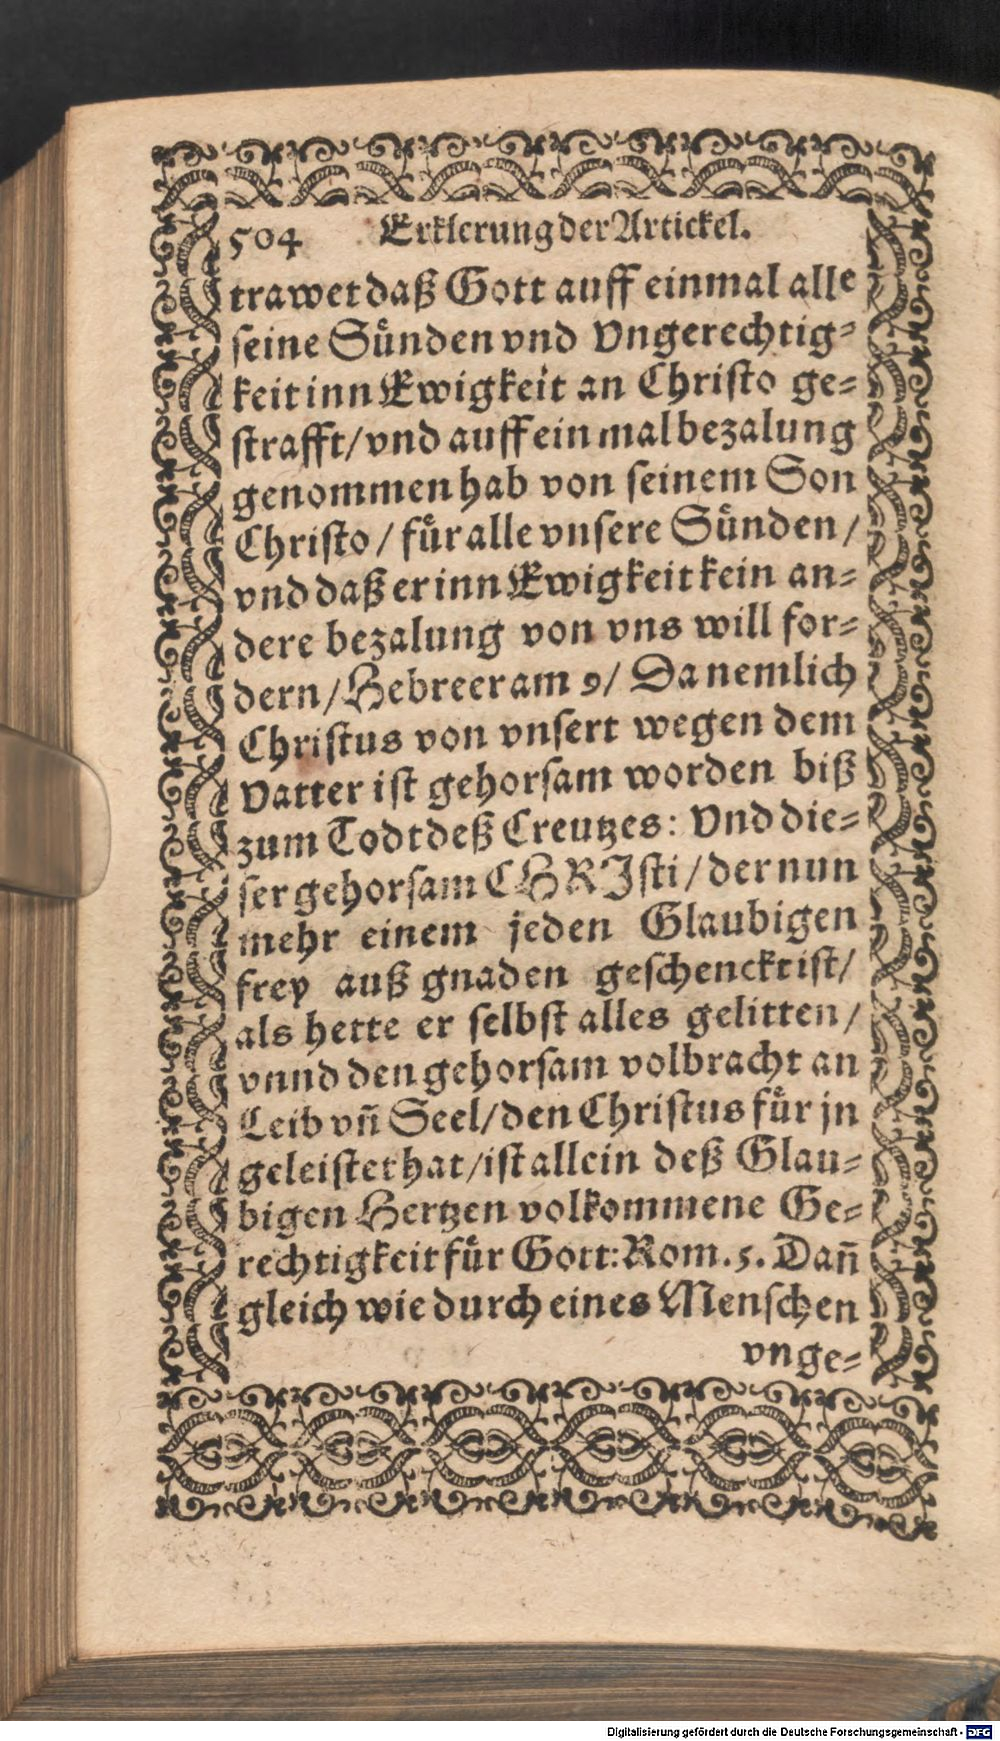 504 Erklerung der Artickel.
trawet daß Gott auff einmal alle
seine Sünden vnd Vngerechtig=
keit inn Ewigkeit an Christo ge=
strafft/ vnd auff ein mal bezalung
genommen hab von seinem Son
Christo / für alle vnsere Sünden /
vnd daß er inn Ewigkeit kein an=
dere bezalung von vns will for=
dern / Hebreer am 9/ Da nemlich
Christus von vnsert wegen dem
Vatter ist gehorsam worden biß
zum Todt deß Creutzes: Vnd die=
ser gehorsam CHRJsti / der nun
mehr einem jeden Glaubigen
frey auß gnaden geschenckt ist/
als hette er selbst alles gelitten /
vnnd den gehorsam volbracht an
Leib vñ Seel/ den Christus für jn
geleistet hat / ist allein deß Glau=
bigen Hertzen volkommene Ge=
rechtigkeit für Gott: Rom. 5. Dañ
gleich wie durch eines Menschen
vnge=
Digitalisierung gefördert durch die Deutsche Forschungsgemeinschaft - DFG